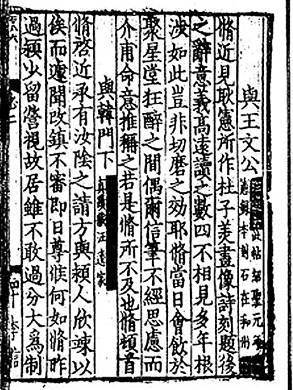 與王文公
刻石在和州
脩近見耿憲所作杜子美畫像詩刻題後
之辭意義高遠讀之數四不相見多年根
涉如此豈非切磨之效耶脩當日會飲於
聚星堂狂醉之間偶爾信筆不經思慮而
介甫命意推稱之若是脩所不及也脩頓首
與韓門下
真蹟藏汪逵家
脩啓近承有汝陰之請方與潁人欣竦以
俟而遽聞改鎮不審即日尊候何如脩昨
過潁少留營視故居雖不敢過分大爲制